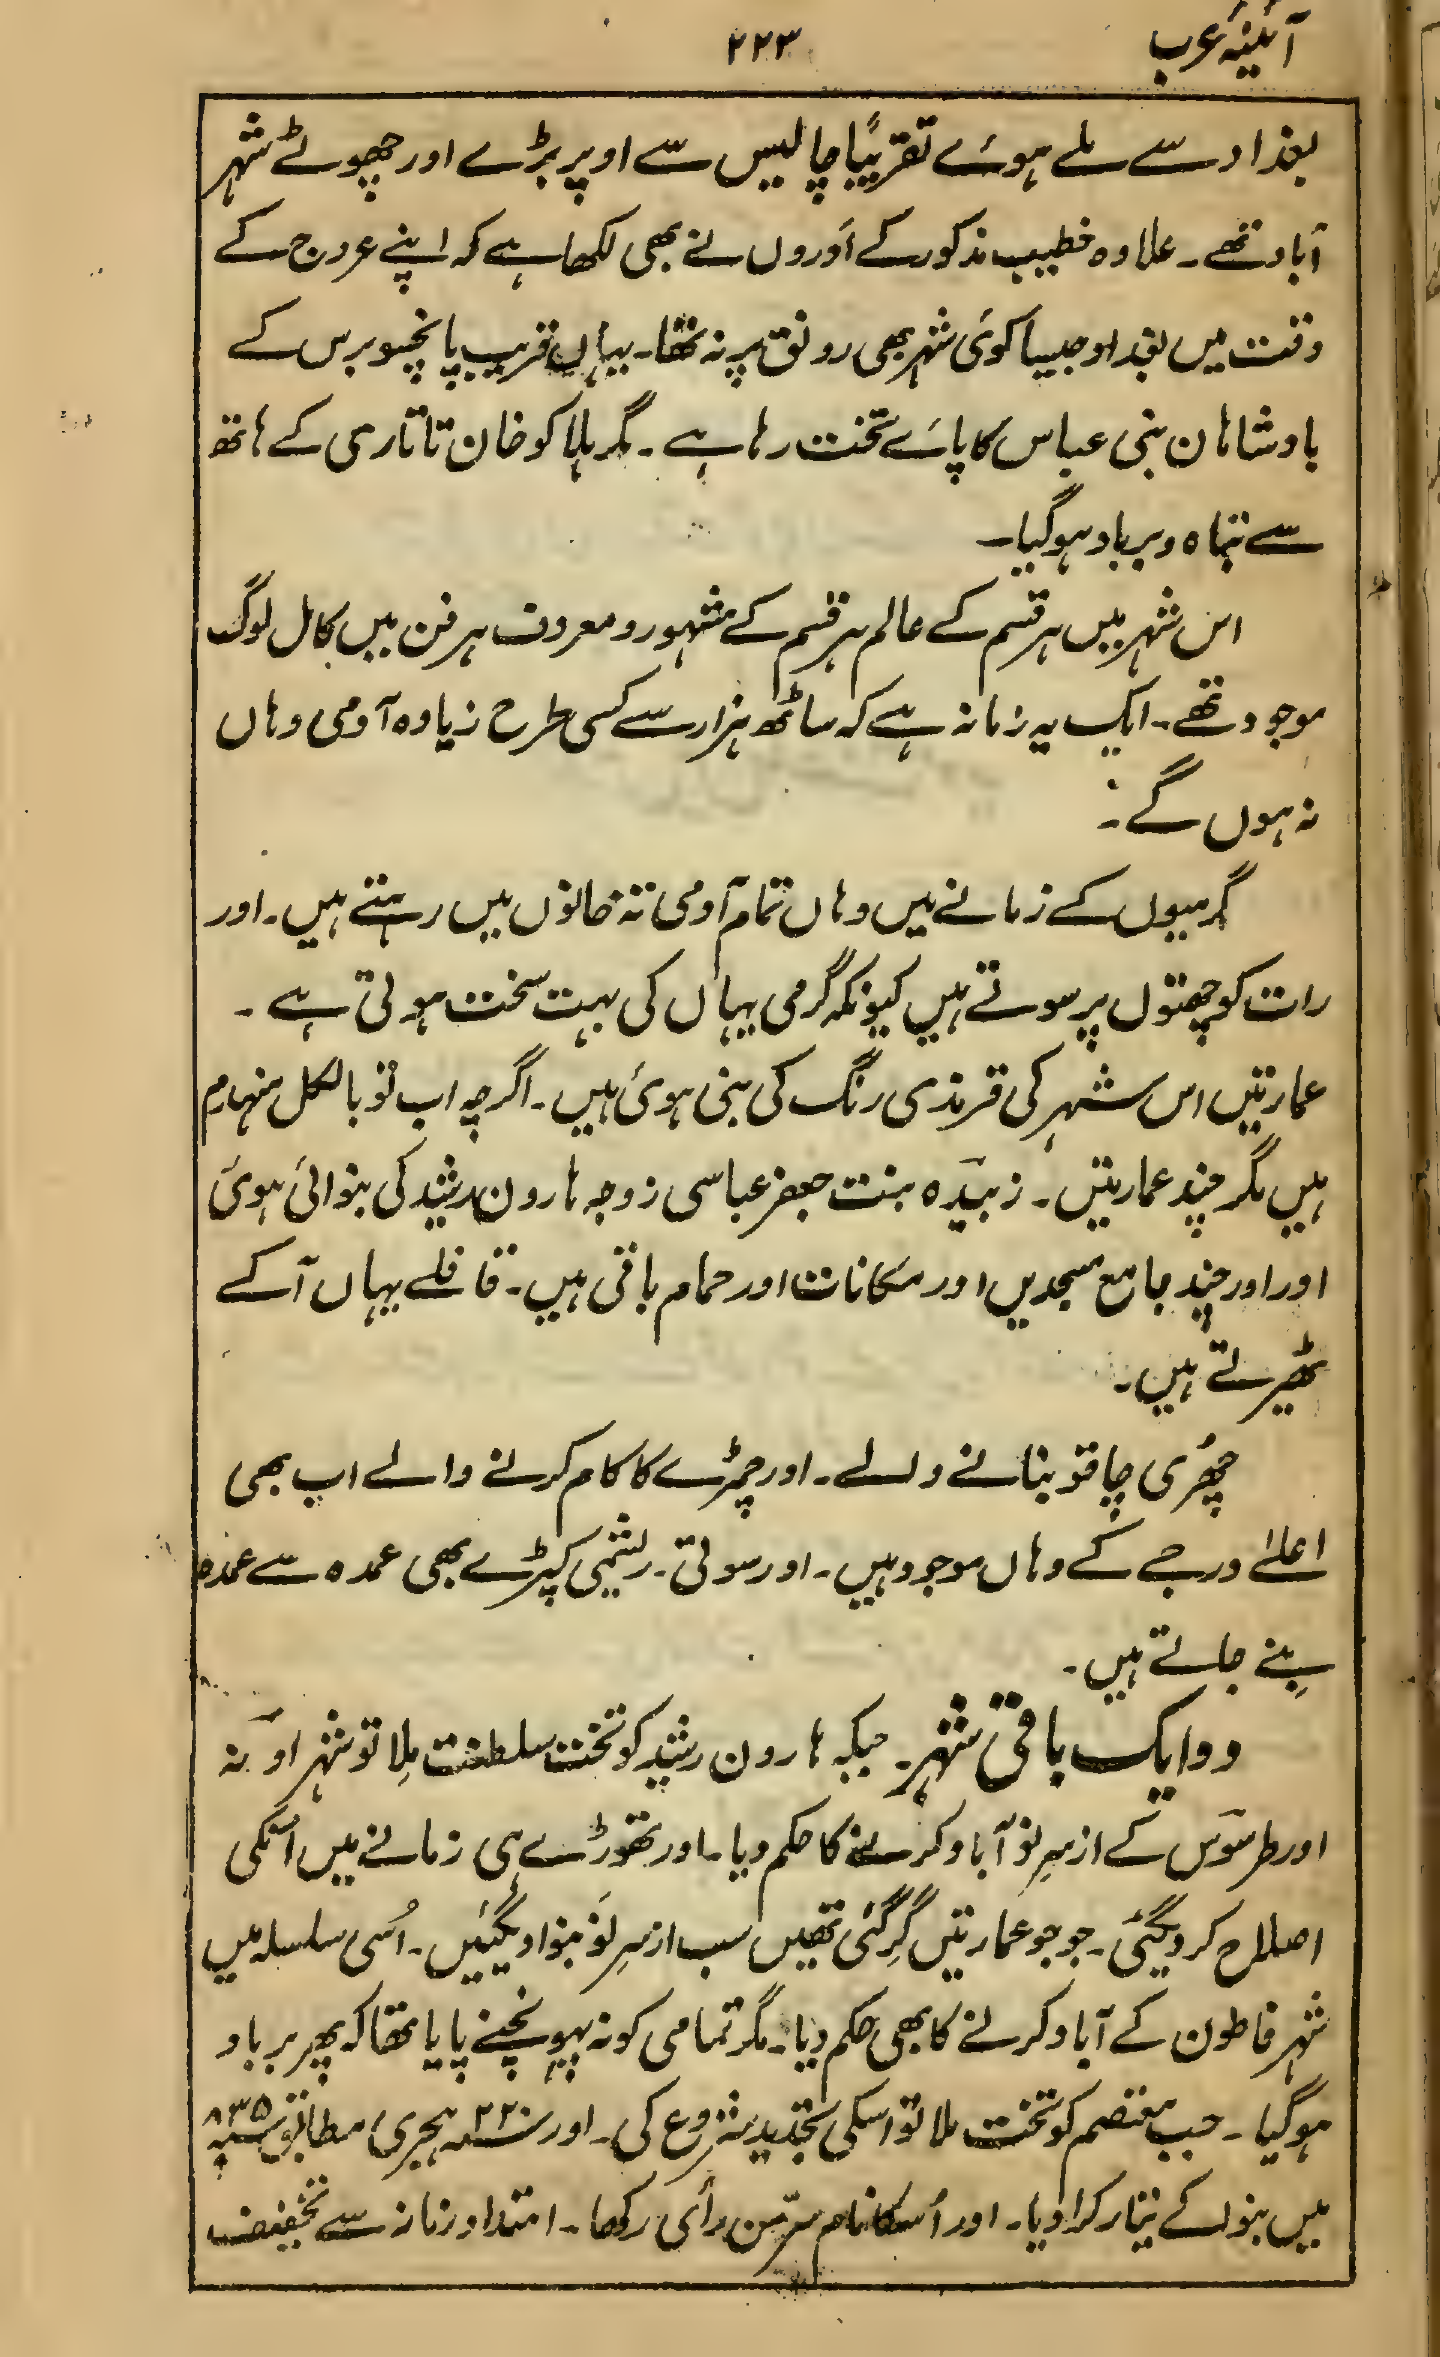 آئینۂ عرب
۲۲۳
بغداد سے ملے ہوئے تقریبًا چالیس سے اوپر بڑے اور چھوٹے شہر
آباد تھے۔ علاوہ خطیب مذکور کے اَوروں نے بھی لکھا ہے کہ اپنے عروج کے
وقت میں بغداد جیسا کوئی شہر بھی رونق پر نہ تھا۔ یہاں قریب پانچسو برس کے
بادشاہان بنی عباس کا پائے تخت رہا ہے۔ مگر ہلاکو خان تاتاری کے ہاتھ
سے تباہ و برباد ہوگیا۔
اس شہر میں ہر قسم کے عالم ہر قسم کے مشہور و معروف ہر فن میں کامل لوگ
موجود تھے۔ ایک یہ زمانہ ہے کہ ساٹھ ہزار سے کسی طرح زیادہ آدمی وہاں
نہ ہوں گے۔
گرمیوں کے زمانے میں وہاں تمام آدمی تہ خانوں میں رہتے ہیں۔ اور
رات کو چھتوں پر سوتے ہیں کیونکہ گرمی یہاں کی بہت سخت ہوتی ہے۔
عمارتیں اس شہر کی قرمزی رنگ کی بنی ہوئی ہیں۔ اگرچہ اب تو بالکل منہدم
ہیں مگر چند عمارتیں۔ زبیدہ بنت جعفر عباسی زوجہ ہارون رشید کی بنوائی ہوئی
اور اور چند جامع مسجدیں اور مکانات اور حمام باقی ہیں۔ قافلے یہاں آکے
ٹھیرتے ہیں۔
چھُری چاقو بنانے والے۔ اور چمڑے کا کام کرنے والے اب بھی
اعلےٰ درجے کے وہاں موجود ہیں۔ اور سوتی۔ ریشمی کپڑے بھی عمدہ سے عمدہ
بِنے جاتے ہیں۔
دو ایک باقی شہر۔ جبکہ ہارون رشید کو تخت سلطنت مِلا تو شہر اونہ
اور طرسوس کے از سرِ نو آباد کرنے کا حکم دیا۔ اور تھوڑے ہی زمانے میں اُنکی
اصلاح کردیگئی۔ جو جو عمارتیں گِرگئی تھیں سب از سرِ نَو بنوا دیگئیں۔ اُسی سلسلہ میں
شہر قاطون کے آباد کرنے کا بھی حکم دیا۔ مگر تمامی کو نہ پہونچنے پایا تھا کہ پھر برباد
ہوگیا۔ جب معتصم کو تخت ملا تو اسکی تجدید شروع کی۔ اور سنہ ۲۲۰ ہجری مطابق سنہ ۸۳۵
میں بنوا کے تیار کرا دیا۔ اور اُسکا نام سرّمن رأی رکھا۔ امتداد زمانہ سے تخفیف